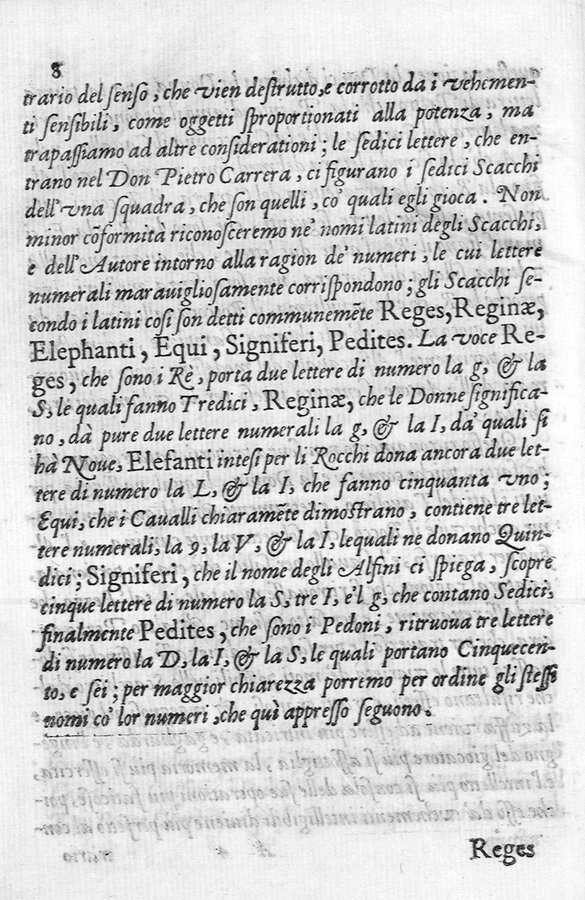 8
trario del senso, che vien destrutto, e corrotto da i vehemen-
ti sensibili, come oggetti sproportionati alla potenza, ma
trapassiamo ad altre considerationi; le sedici lettere, che en-
trano nel Don Pietro Carrera, ci figurano i sedici Scacchi
dell'vna squadra, che son quelli, co' quali egli gioca. Non
minor cõformità riconosceremo ne' nomi latini degli Scacchi,
e dell'Autore intorno alla ragion de' numeri, le cui lettere
numerali marauigliosamente corrispondono; gli Scacchi se-
condo i latini così son detti communemẽte Reges, Reginæ,
Elephanti, Equi, Signiferi, Pedites. La voce Re-
ges, che sono i Rè, porta due lettere di numero la g, & la
S, le quali fanno Tredici, Reginæ, che le Donne significa-
no, dà pure due lettere numerali la g, & la I, da' quali si
hà Noue, Elefanti intesi per li Rocchi dona ancora due let-
tere di numero la L, & la I, che fanno cinquanta vno;
Equi, che i Caualli chiaramẽte dimostrano, contiene tre let-
tere numerali, la 9, la V, & la I, lequali ne donano Quin-
dici; Signiferi, che il nome degli Alfini ci spiega, scopre
cinque lettere di numero la S, tre I, e'l g, che contano Sedici,
finalmente Pedites, che sono i Pedoni, ritruoua tre lettere
di numero la D, la I, & la S, le quali portano Cinquecen-
to, e sei; per maggior chiarezza porremo per ordine gli stessi
nomi co' lor numeri, che quì appresso seguono.
Reges